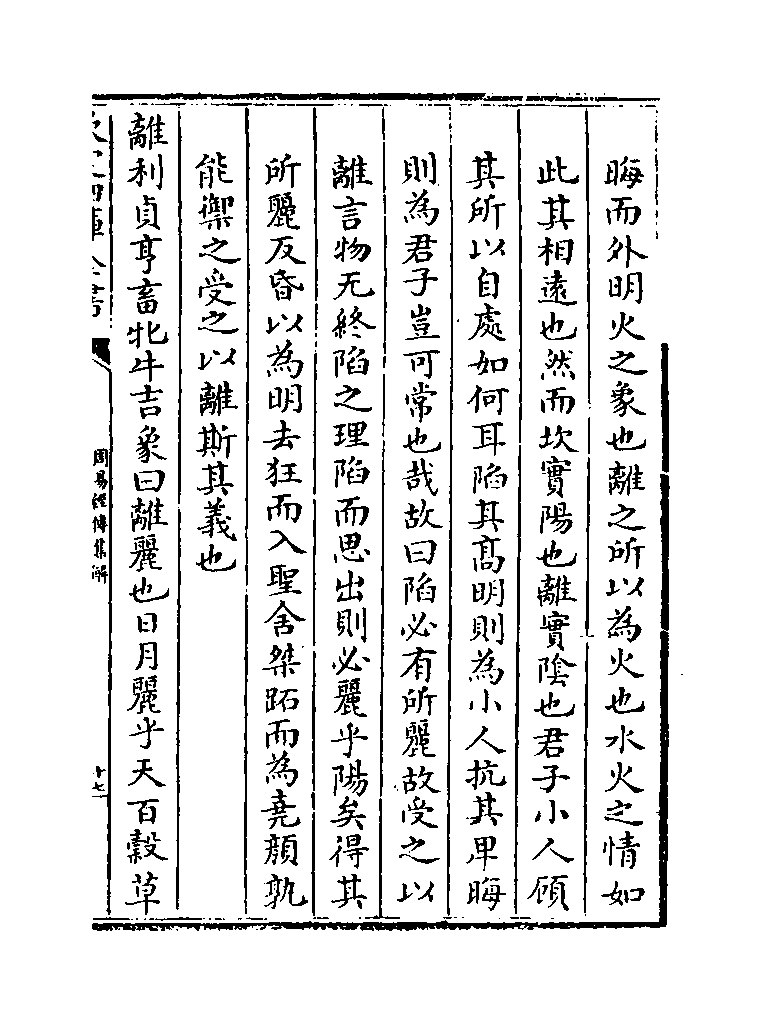 晦而外明火之象也離之所以為火也水火之情如
此其相遠也然而坎實陽也離實陰也君子小人顧
其所以自處如何耳陷其髙明則為小人抗其卑晦
則為君子豈可常也哉故曰陷必有所麗故受之以
離言物无終陷之理陷而思出則必麗乎陽矣得其
所麗反昏以為明去狂而入聖舍桀跖而為堯顔孰
能禦之受之以離斯其義也
離利貞亨畜牝牛吉彖曰離麗也日月麗乎天百榖草
欽定四庫全書
周易經傳集解
十七